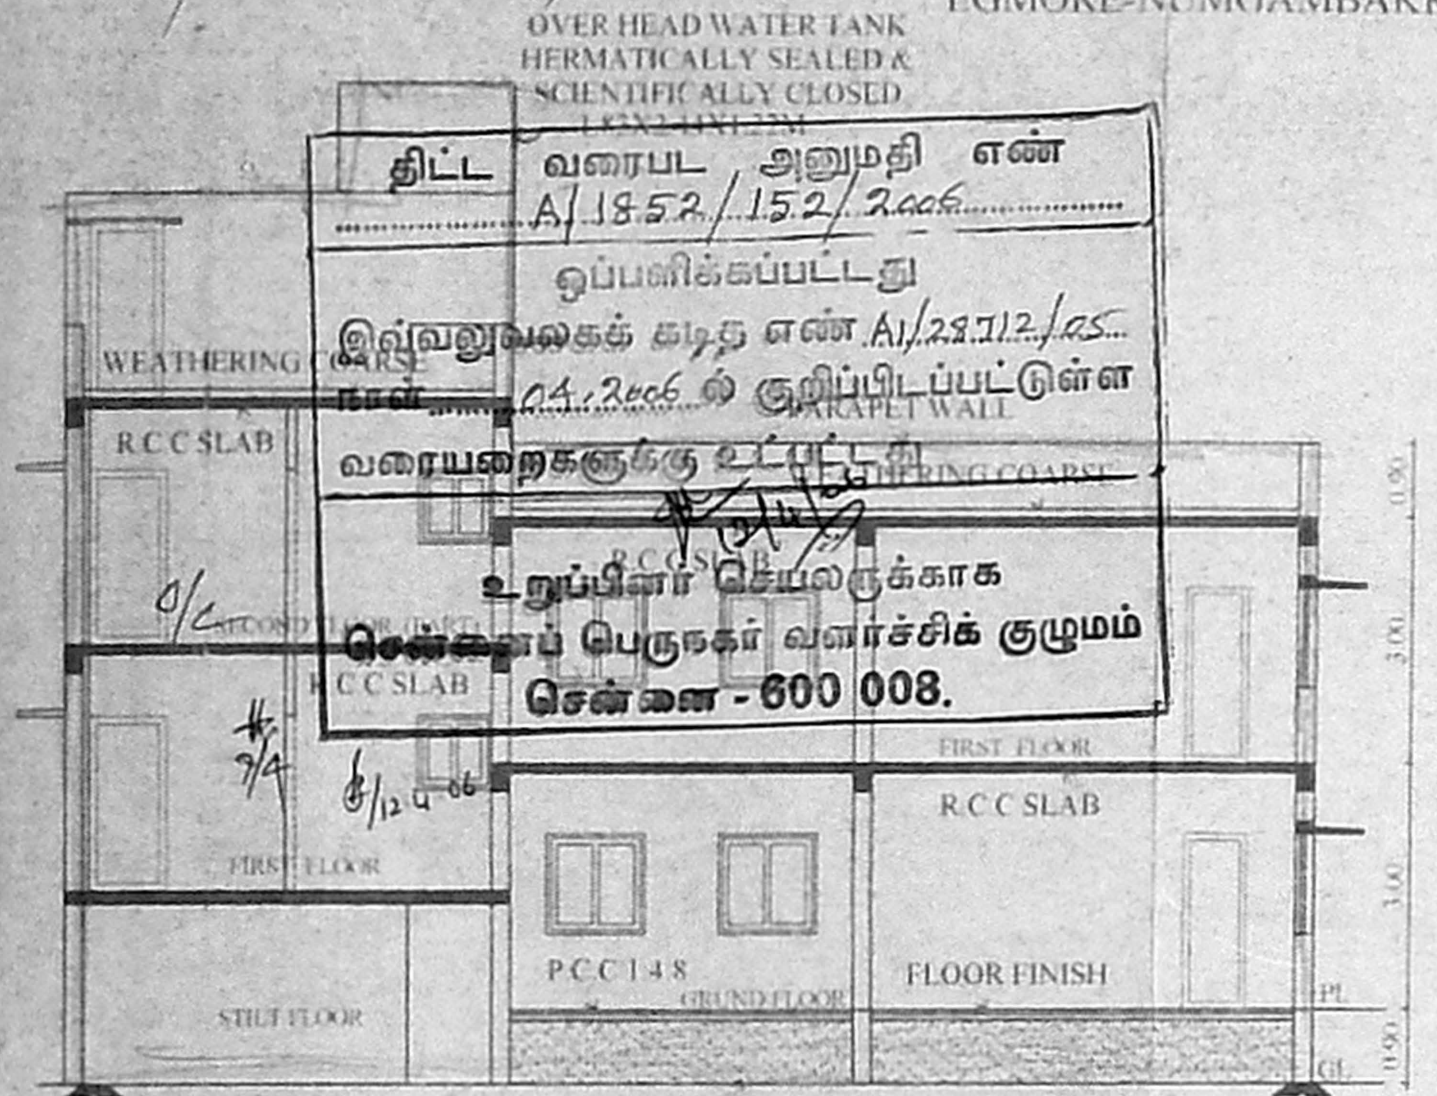 OVER HEAD WATER TANK
HERMATICALLY SEALED &
SCIENTIFICALLY CLOSED
1.82X2.44X1.22M
திட்ட வரைபட அனுமதி எண்
A/1852/152/2006
ஒப்பளிக்கப்பட்டது
இவ்வலுவலகக் கடித எண் A1/28712/05
நாள் 04.2006 ல் குறிப்பிடப்பட்டுள்ள
வரையறைகளுக்கு உட்பட்டது
12/4/06
உறுப்பினர் செயலருக்காக
சென்னைப் பெருநகர் வளர்ச்சிக் குழுமம்
சென்னை - 600 008.
WEATHERING COARSE
R C C SLAB
PARAPET WALL
WEATHERING COARSE
R C C SLAB
0.90
O/C
SECOND FLOOR (PART)
R C C SLAB
3.00
9/4
12 4 06
FIRST FLOOR
R C C SLAB
FIRST FLOOR
3.00
P C C 1 4 8
FLOOR FINISH
GRUND FLOOR
PL
STILT FLOOR
0.90
GL